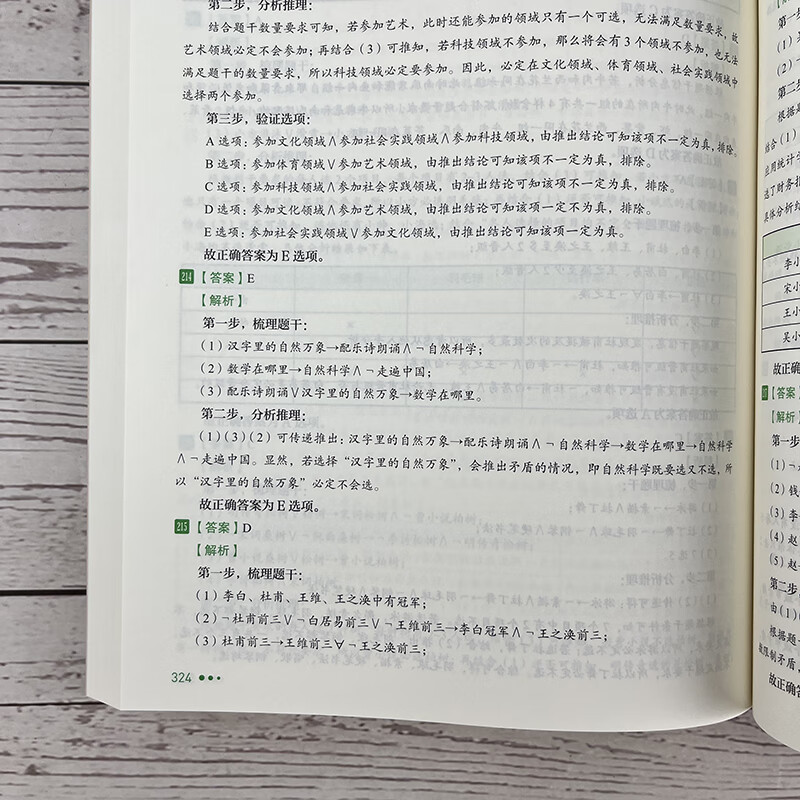 第二步，分析推理：
结合题干数量要求可知，若参加艺术，此时还能参加的领域只有一个可选，无法满足数量要求，故
艺术领域必定不会参加；再结合（3）可推知，若科技领域不参加，那么将会有3个领域不参加，也无法
满足题干的数量要求，所以科技领域必定要参加。因此，必定在文化领域、体育领域、社会实践领域中
选择两个参加。
第三步，验证选项：
A选项：参加文化领域∧参加社会实践领域∧参加科技领域，由推出结论可知该项不一定为真，排除。
B选项：参加体育领域∨参加艺术领域，由推出结论可知该项不一定为真，排除。
C选项：参加科技领域∧参加社会实践领域，由推出结论可知该项不一定为真，排除。
D选项：参加文化领域∧参加艺术领域，由推出结论可知该项一定不为真，排除。
E选项：参加社会实践领域∨参加文化领域，由推出结论可知该项一定为真。
故正确答案为E选项。
214【答案】E
【解析】
第一步，梳理题干：
（1）汉字里的自然万象→配乐诗朗诵∧¬自然科学；
（2）数学在哪里→自然科学∧¬走遍中国；
（3）配乐诗朗诵∨汉字里的自然万象→数学在哪里。
第二步，分析推理：
（1）（3）（2）可传递推出：汉字里的自然万象→配乐诗朗诵∧¬自然科学→数学在哪里→自然科学
∧¬走遍中国。显然，若选择“汉字里的自然万象”，会推出矛盾的情况，即自然科学既要选又不选，所
以“汉字里的自然万象”必定不会选。
故正确答案为E选项。
215【答案】D
【解析】
第一步，梳理题干：
（1）李白、杜甫、王维、王之涣中有冠军；
（2）¬杜甫前三∨¬白居易前三∨¬王维前三→李白冠军∧¬王之涣前三；
（3）杜甫前三→王维前三∀¬王之涣前三；
324
第一
（1）
（2）
第二
根据
结合（1）
应用统计学
选了财务
具体分析
李小
宋小
王小
吴小
故正确
【答案】
【解析】
第一步
（1）¬
（2）钱
（3）李
（4）赵
（5）赵
第二步
由（1）
根据题
限制矛盾，
故正确答